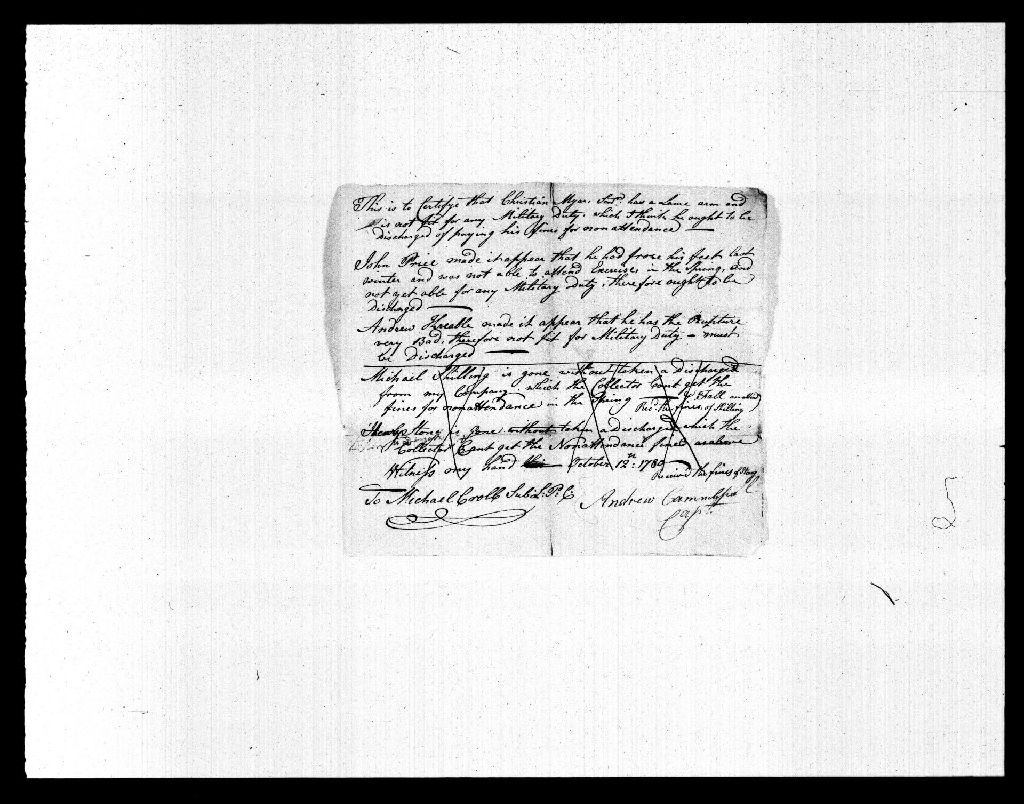 This is to Certifye that Christian Myar, Junr has a Lame arm and
is not fit for any Military Duty, which I think he ought to be
discharged of paying his fines for nonattendance
John Price made it appear that he had froze his feet last
winter and was not able to attend Exercise in the Spring, and
not yet able for any Military Duty, therefore ought to be
discharged
Andrew Kreable made it appear that he has the Rupture
very Bad, therefore not fit for Military Duty - must
be Discharged
Michael Shilling is gone without taken a discharge
from my Company which the Collector Cant get the
fines for nonattendance in the Spring
Recd. the fines of Shilling
Henry Stong is gone without taken a discharge which the
Collector Cant get the Nonattendance fines as above
Witness my hand this October 12th: 1780
Received the fines of Stong
To Michael Croll Sub: Lt. Y: C
Andrew Cammbler
Capt: